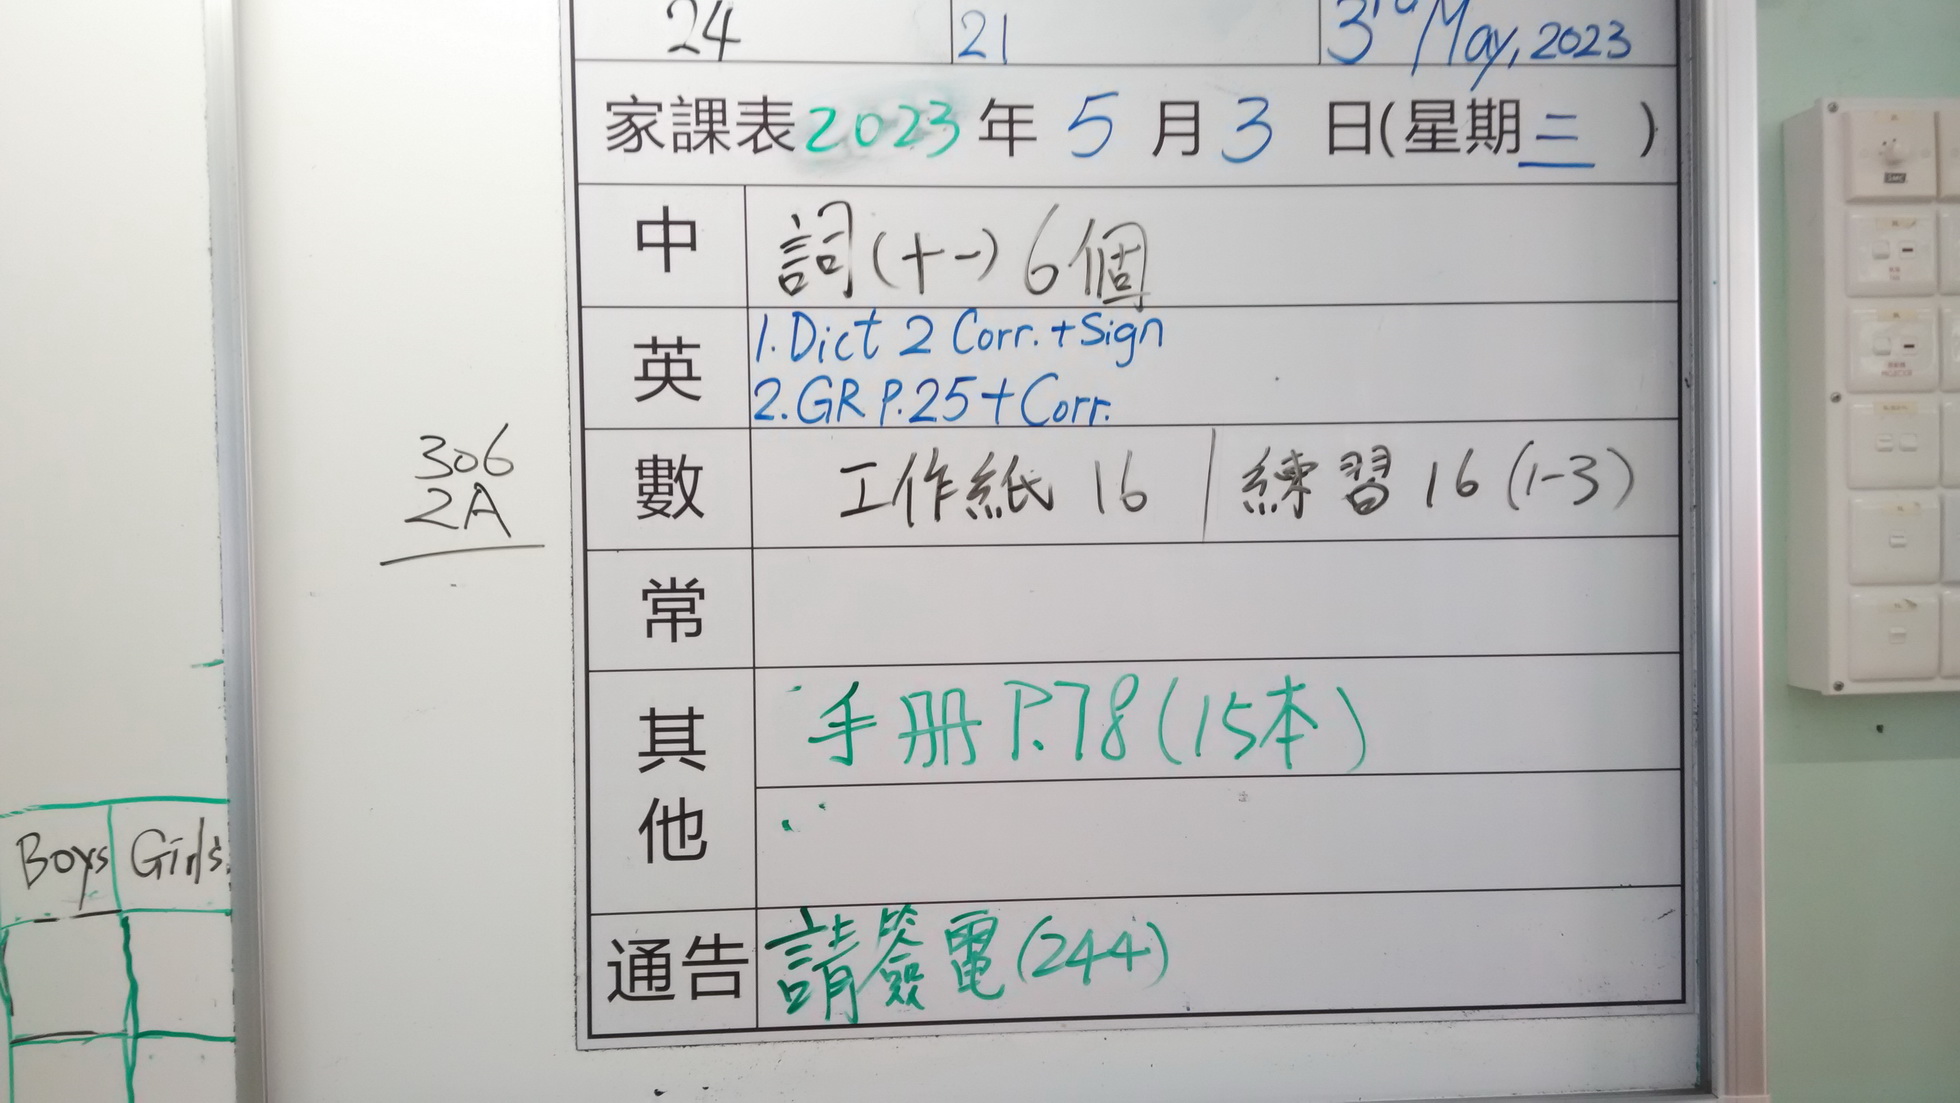 24 21 3rd May, 2023
家課表2023年 5 月 3 日(星期三 )
中 詞(十一) 6個
英 1. Dict 2 Corr. + Sign
2. GR P.25 + Corr.
306
2A
數 工作紙 16 | 練習 16 (1-3)
常
其他 手冊 P.78 (15本)
Boys Girls
通告 請簽電(244)